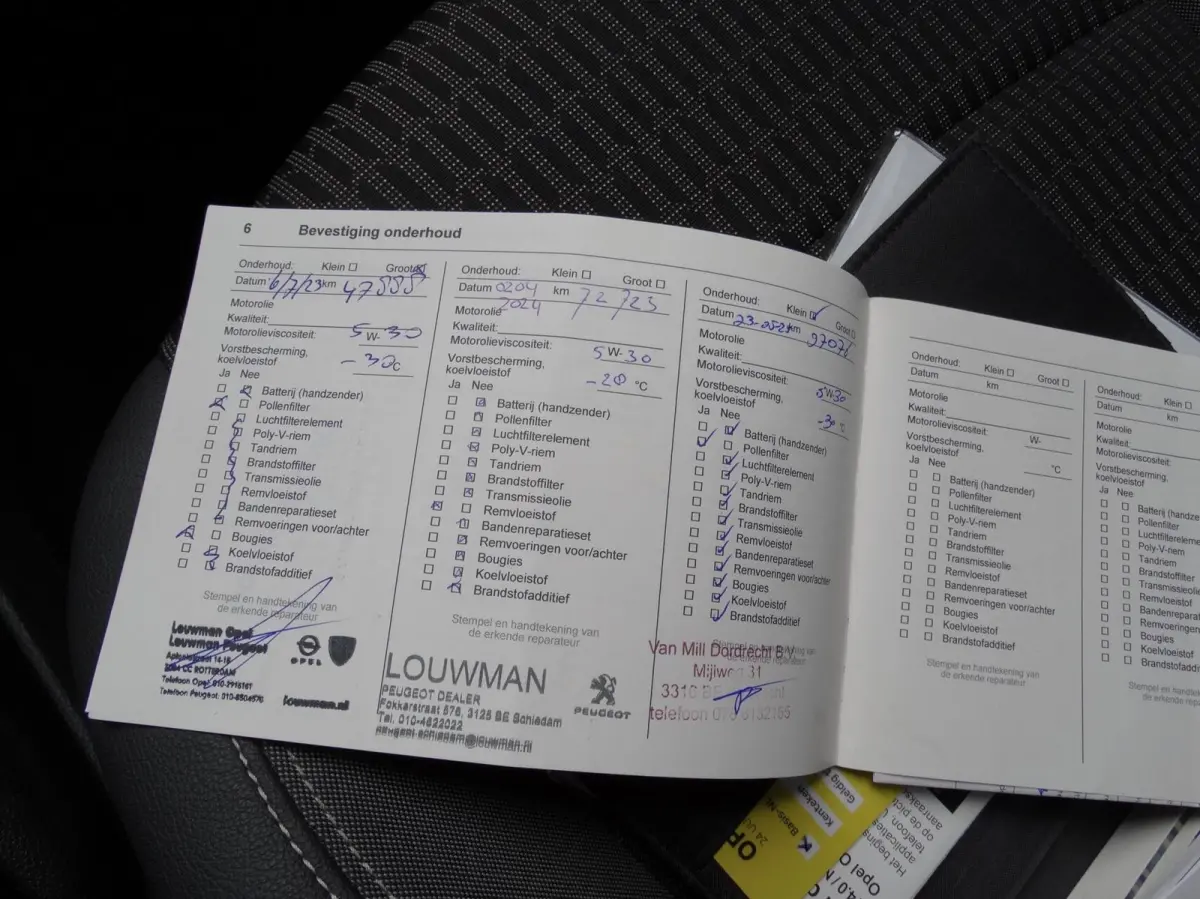 6 Bevestiging onderhoud
Onderhoud: Klein Groot
Datum 6/7/23 km 47888
Motorolie
Kwaliteit:
Motorolieviscositeit: 5 W- 30
Vorstbescherming,
koelvloeistof -30 °C
Ja Nee
Batterij (handzender)
Pollenfilter
Luchtfilterelement
Poly-V-riem
Tandriem
Brandstoffilter
Transmissieolie
Remvloeistof
Bandenreparatieset
Remvoeringen voor/achter
Bougies
Koelvloeistof
Brandstofadditief
Stempel en handtekening van
de erkende reparateur
Louwman Opel
Louwman Peugeot
ROTTERDAM
Telefoon Opel:
Telefoon Peugeot:
OPEL
louwman.nl
Onderhoud: Klein Groot
Datum 0204 km 72723
2024
Motorolie
Kwaliteit:
Motorolieviscositeit: 5 W- 30
Vorstbescherming,
koelvloeistof -20 °C
Ja Nee
Batterij (handzender)
Pollenfilter
Luchtfilterelement
Poly-V-riem
Tandriem
Brandstoffilter
Transmissieolie
Remvloeistof
Bandenreparatieset
Remvoeringen voor/achter
Bougies
Koelvloeistof
Brandstofadditief
Stempel en handtekening van
de erkende reparateur
LOUWMAN
PEUGEOT DEALER
Fokkerstraat 576, 3125 BE Schiedam
Tel. 010-4622022
peugeot-schiedam@louwman.nl
PEUGEOT
Onderhoud: Klein Groot
Datum km
Motorolie
Kwaliteit:
Motorolieviscositeit: 5W30
Vorstbescherming,
koelvloeistof -30 °C
Ja Nee
Batterij (handzender)
Pollenfilter
Luchtfilterelement
Poly-V-riem
Tandriem
Brandstoffilter
Transmissieolie
Remvloeistof
Bandenreparatieset
Remvoeringen voor/achter
Bougies
Koelvloeistof
Brandstofadditief
Van Mill Dordrecht B.V.
Mijlweg 31
telefoon
Onderhoud: Klein Groot
Datum km
Motorolie
Kwaliteit:
Motorolieviscositeit: W-
Vorstbescherming,
koelvloeistof °C
Ja Nee
Batterij (handzender)
Pollenfilter
Luchtfilterelement
Poly-V-riem
Tandriem
Brandstoffilter
Transmissieolie
Remvloeistof
Bandenreparatieset
Remvoeringen voor/achter
Bougies
Koelvloeistof
Brandstofadditief
Stempel en handtekening van
de erkende reparateur
Onderhoud: Klein
Datum km
Motorolie
Kwaliteit:
Motorolieviscositeit:
Vorstbescherming,
koelvloeistof
Ja Nee
Batterij (handze
Pollenfilter
Luchtfilterelement
Poly-V-riem
Tandriem
Brandstoffilter
Transmissieolie
Remvloeistof
Bandenreparat
Remvoeringen
Bougies
Koelvloeistof
Brandstofaddi
Stempel en ha
de erkende
Geldig
Kenteken
Basis-N
Het begins
applicaties
telefoon,
op de pict
aanraaks
Opel